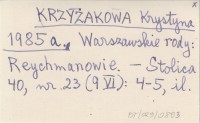 KRZYŻAKOWA Krystyna
1985 a. Warszawskie rody:
Reychmanowie. – Stolica
40, nr. 23 (9 VI): 4-5, il.